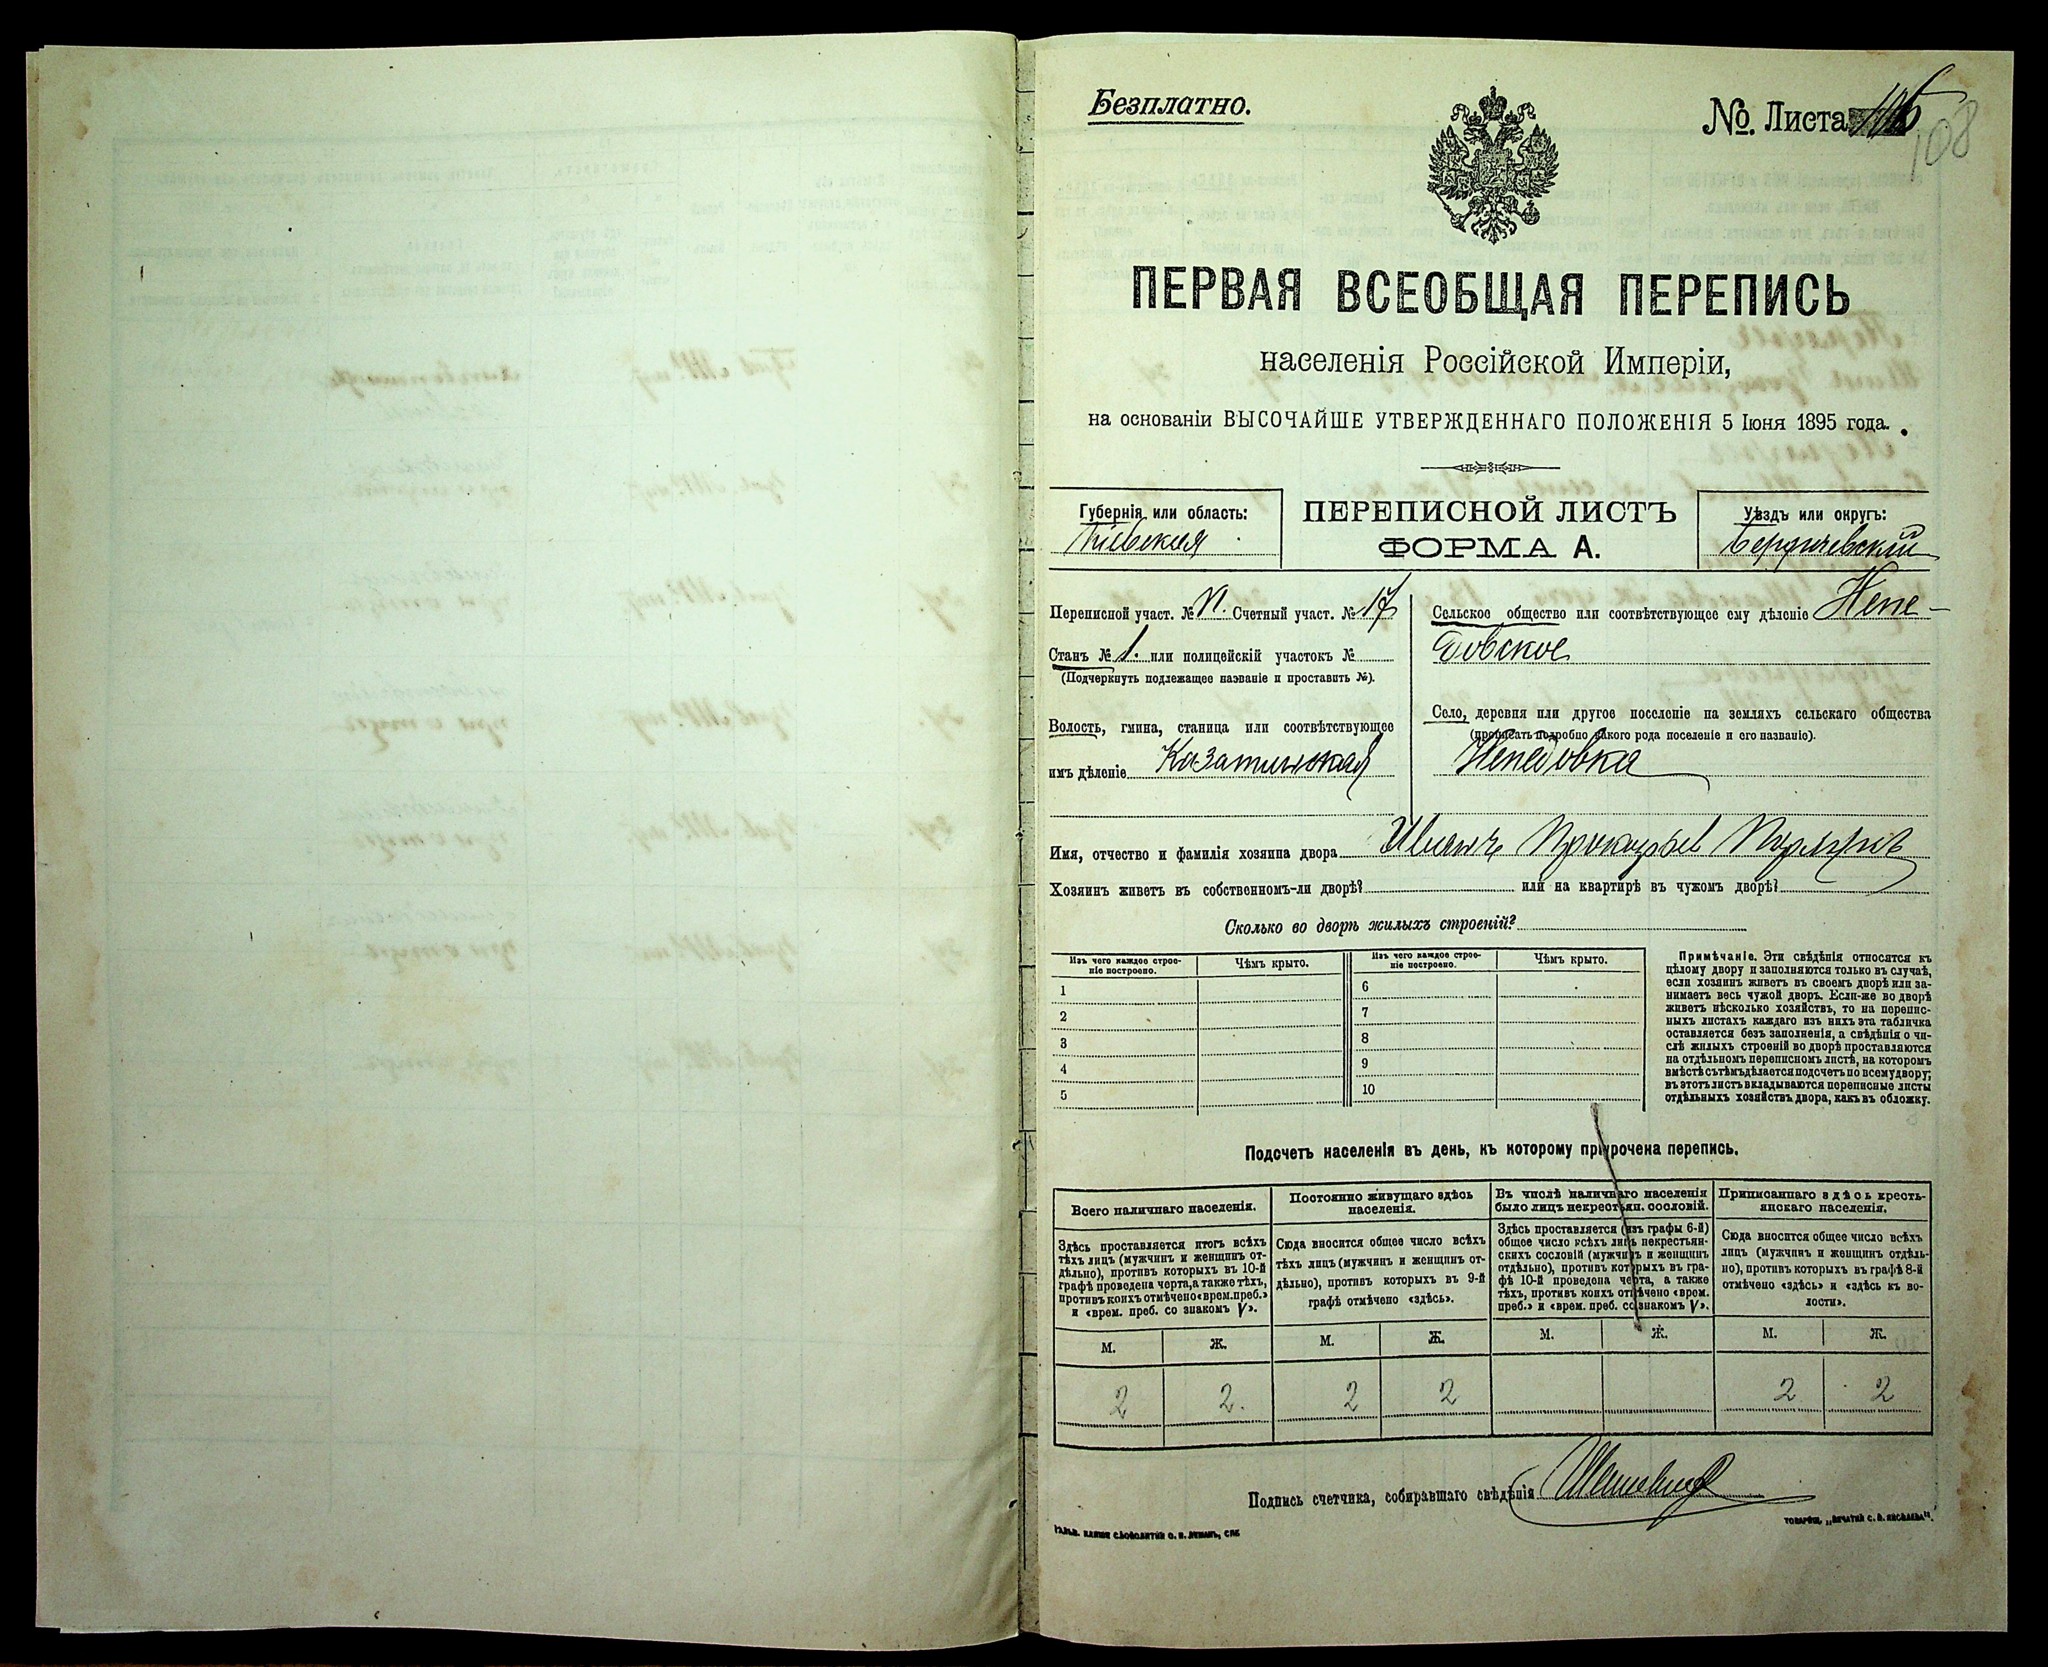 Безплатно.
№ Листа 116
108
ПЕРВАЯ ВСЕОБЩАЯ ПЕРЕПИСЬ
населенія Россійской Имперіи,
на основаніи ВЫСОЧАЙШЕ УТВЕРЖДЕННАГО ПОЛОЖЕНІЯ 5 Іюня 1895 года.
Губернія или область:
Кіевская
ПЕРЕПИСНОЙ ЛИСТЪ
ФОРМА А.
Уѣздъ или округъ:
Бердичевскій
Переписной участ. № VI. Счетный участ. № 17
Станъ № 1. или полицейскій участокъ №
(Подчеркнуть подлежащее названіе и проставить №).
Волость, гмина, станица или соотвѣтствующее
имъ дѣленіе Казатинская
Сельское общество или соотвѣтствующее ему дѣленіе Непе-
довское
Село, деревня или другое поселеніе на земляхъ сельскаго общества
(прописать подробно какого рода поселеніе и его названіе).
Непедовка
Имя, отчество и фамилія хозяина двора Иванъ Прокопьев
Хозяинъ живетъ въ собственномъ-ли дворѣ? или на квартирѣ въ чужомъ дворѣ?
Сколько во дворѣ жилыхъ строеній?
Изъ чего каждое строе-
ніе построено.
Чѣмъ крыто.
1
2
3
4
5
Изъ чего каждое строе-
ніе построено.
Чѣмъ крыто.
6
7
8
9
10
Примѣчаніе. Эти свѣдѣнія относятся къ
цѣлому двору и заполняются только въ случаѣ,
если хозяинъ живетъ въ своемъ дворѣ или за-
нимаетъ весь чужой дворъ. Если-же во дворѣ
живетъ нѣсколько хозяйствъ, то на перепис-
ныхъ листахъ каждаго изъ нихъ эта табличка
оставляется безъ заполненія, а свѣдѣнія о чи-
слѣ жилыхъ строеній во дворѣ проставляются
на отдѣльномъ переписномъ листѣ, на которомъ
вмѣстѣ съ тѣмъ дѣлается подсчетъ по всему двору;
въ этотъ листъ вкладываются переписные листы
отдѣльныхъ хозяйствъ двора, какъ въ обложку.
Подсчетъ населенія въ день, къ которому пріурочена перепись.
Всего наличнаго населенія.
Здѣсь проставляется итогъ всѣхъ
тѣхъ лицъ (мужчинъ и женщинъ от-
дѣльно), противъ которыхъ въ 10-й
графѣ проведена черта, а также тѣхъ,
противъ коихъ отмѣчено «врем. преб.»
и «врем. преб. со знакомъ V».
М. Ж.
2 2.
Постоянно живущаго здѣсь
населенія.
Сюда вносится общее число всѣхъ
тѣхъ лицъ (мужчинъ и женщинъ от-
дѣльно), противъ которыхъ въ 9-й
графѣ отмѣчено «здѣсь».
М. Ж.
2 2
Въ числѣ наличнаго населенія
было лицъ некрестьян. сословій.
Здѣсь проставляется (изъ графы 6-й)
общее число всѣхъ лицъ некрестьян-
скихъ сословій (мужчинъ и женщинъ
отдѣльно), противъ которыхъ въ гра-
фѣ 10-й проведена черта, а также
тѣхъ, противъ коихъ отмѣчено «врем.
преб.» и «врем. преб. со знакомъ V».
М. Ж.
Приписаннаго здѣсь кресть-
янскаго населенія.
Сюда вносится общее число всѣхъ
лицъ (мужчинъ и женщинъ отдѣль-
но), противъ которыхъ въ графѣ 8-й
отмѣчено «здѣсь» и «здѣсь къ во-
лости».
М. Ж.
2 2
Подпись счетчика, собиравшаго свѣдѣнія